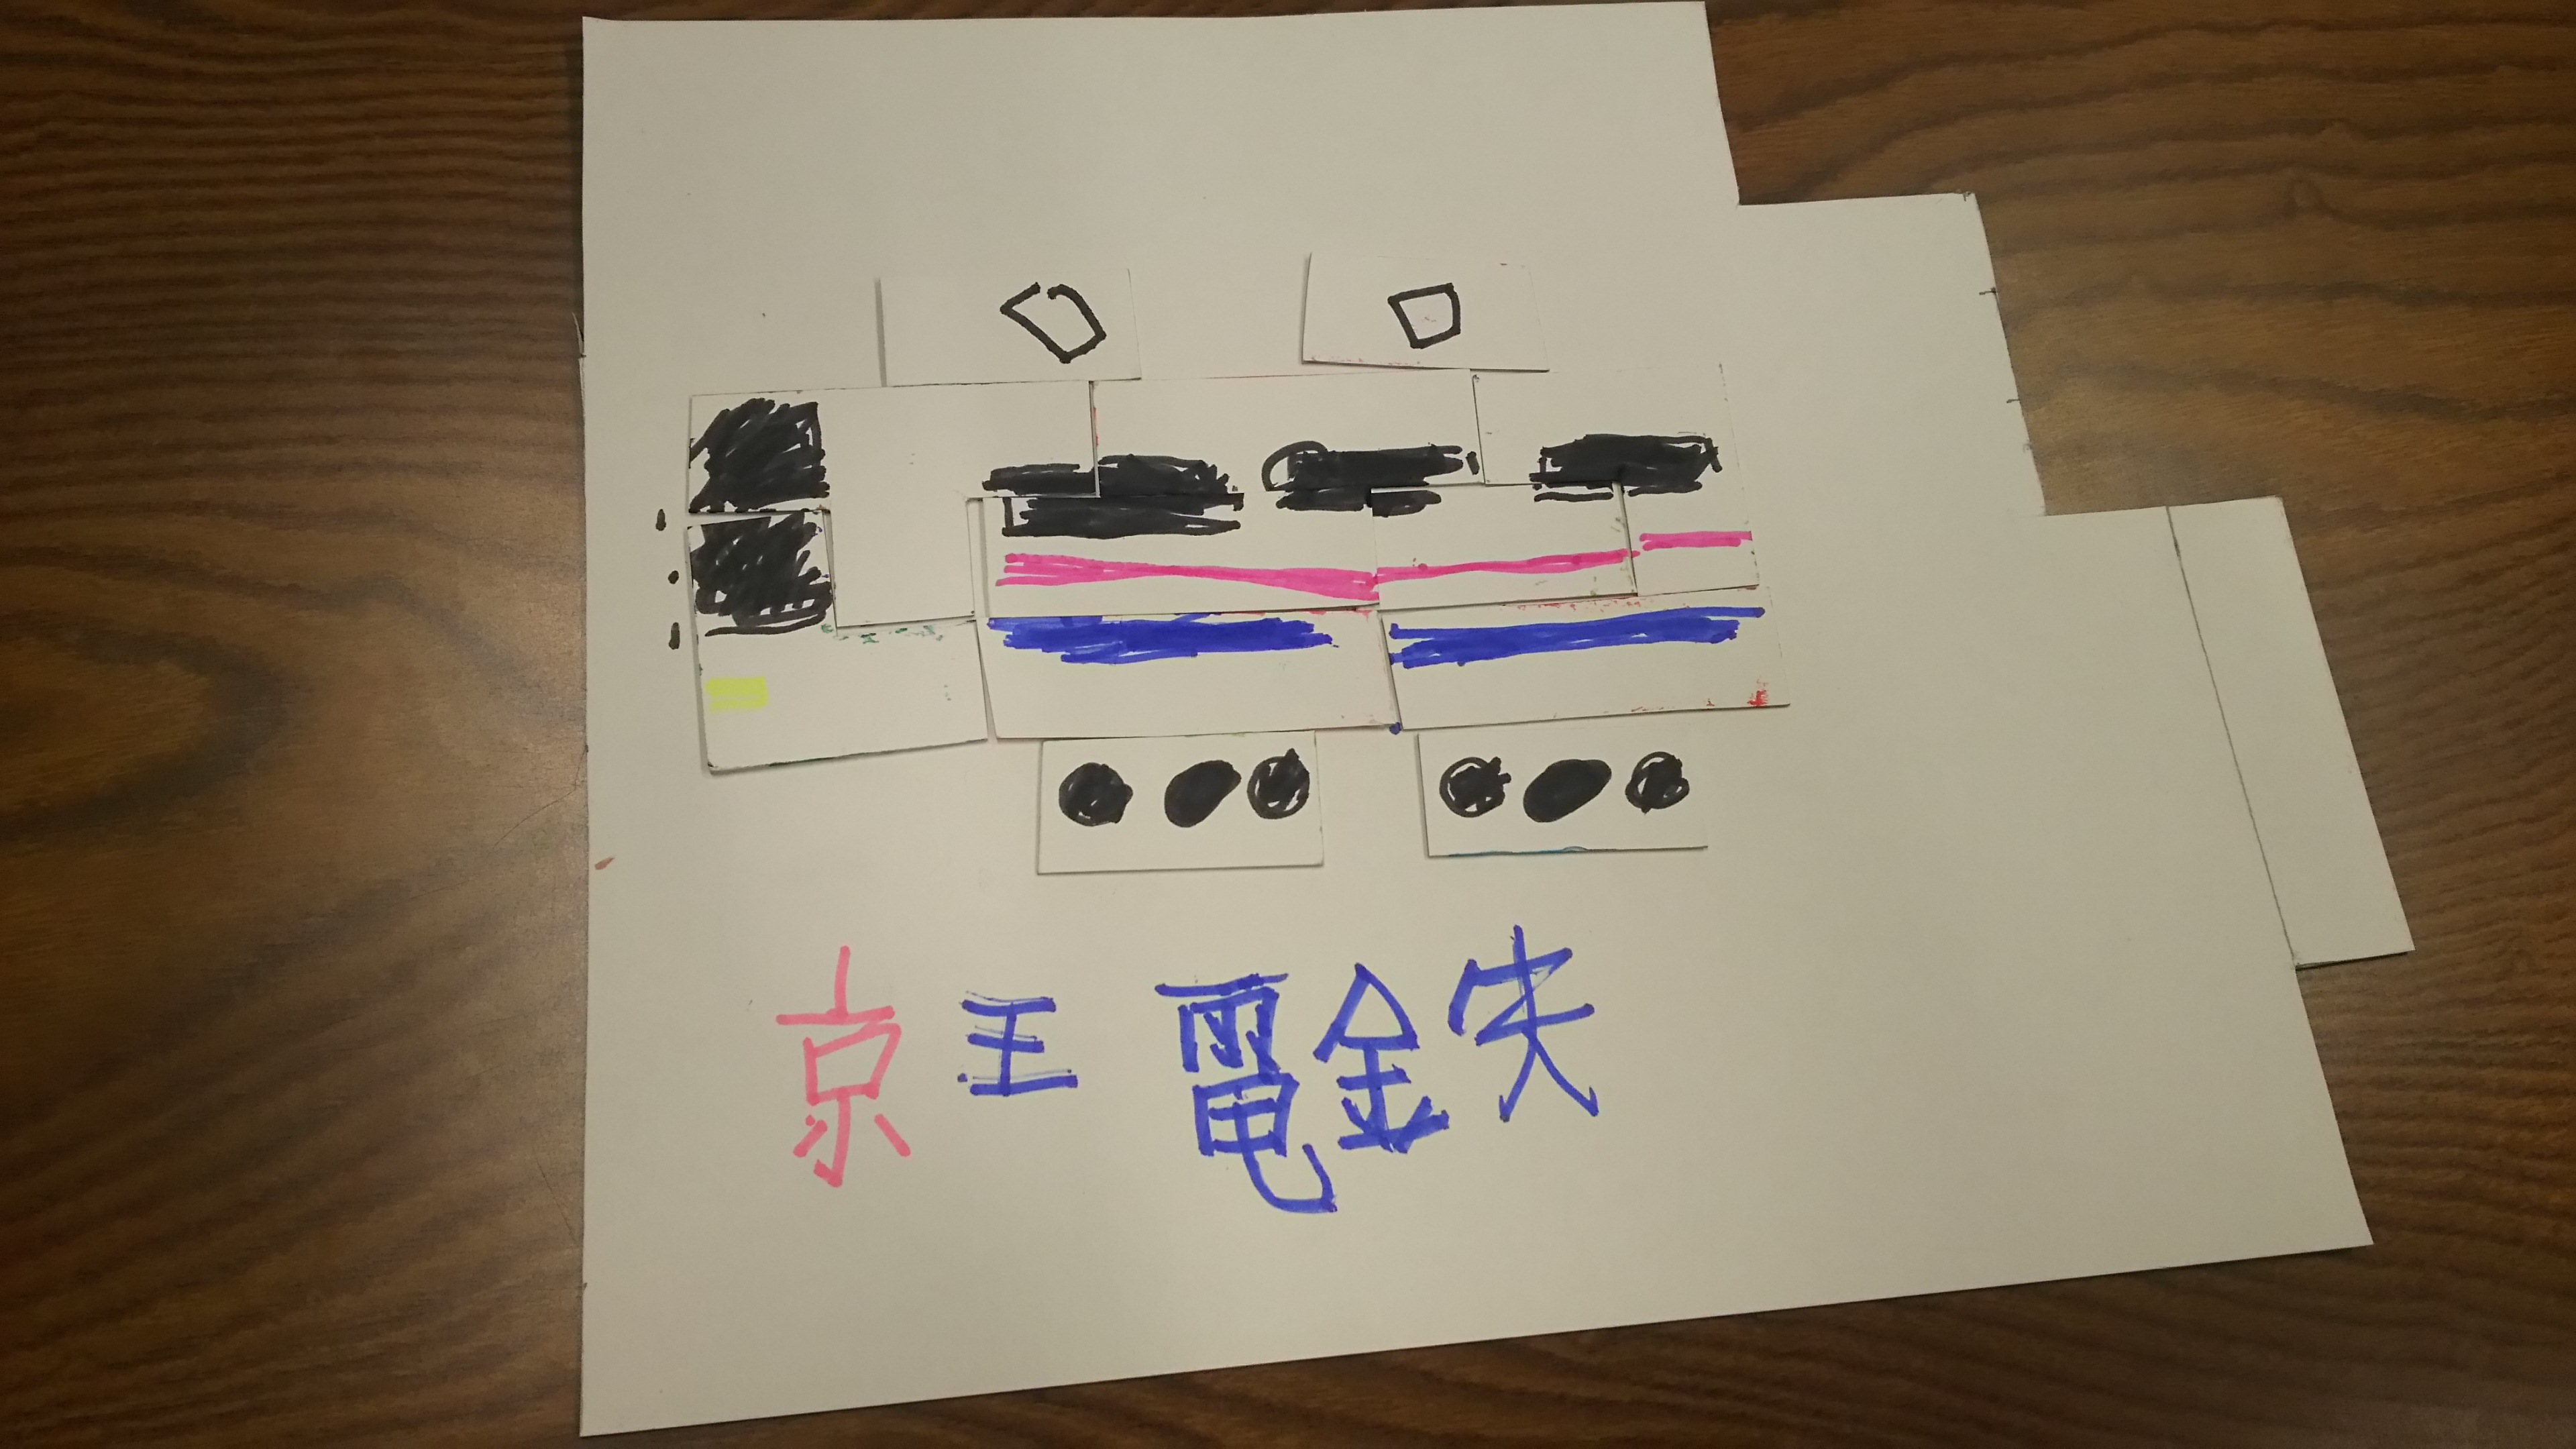 京王電鉄